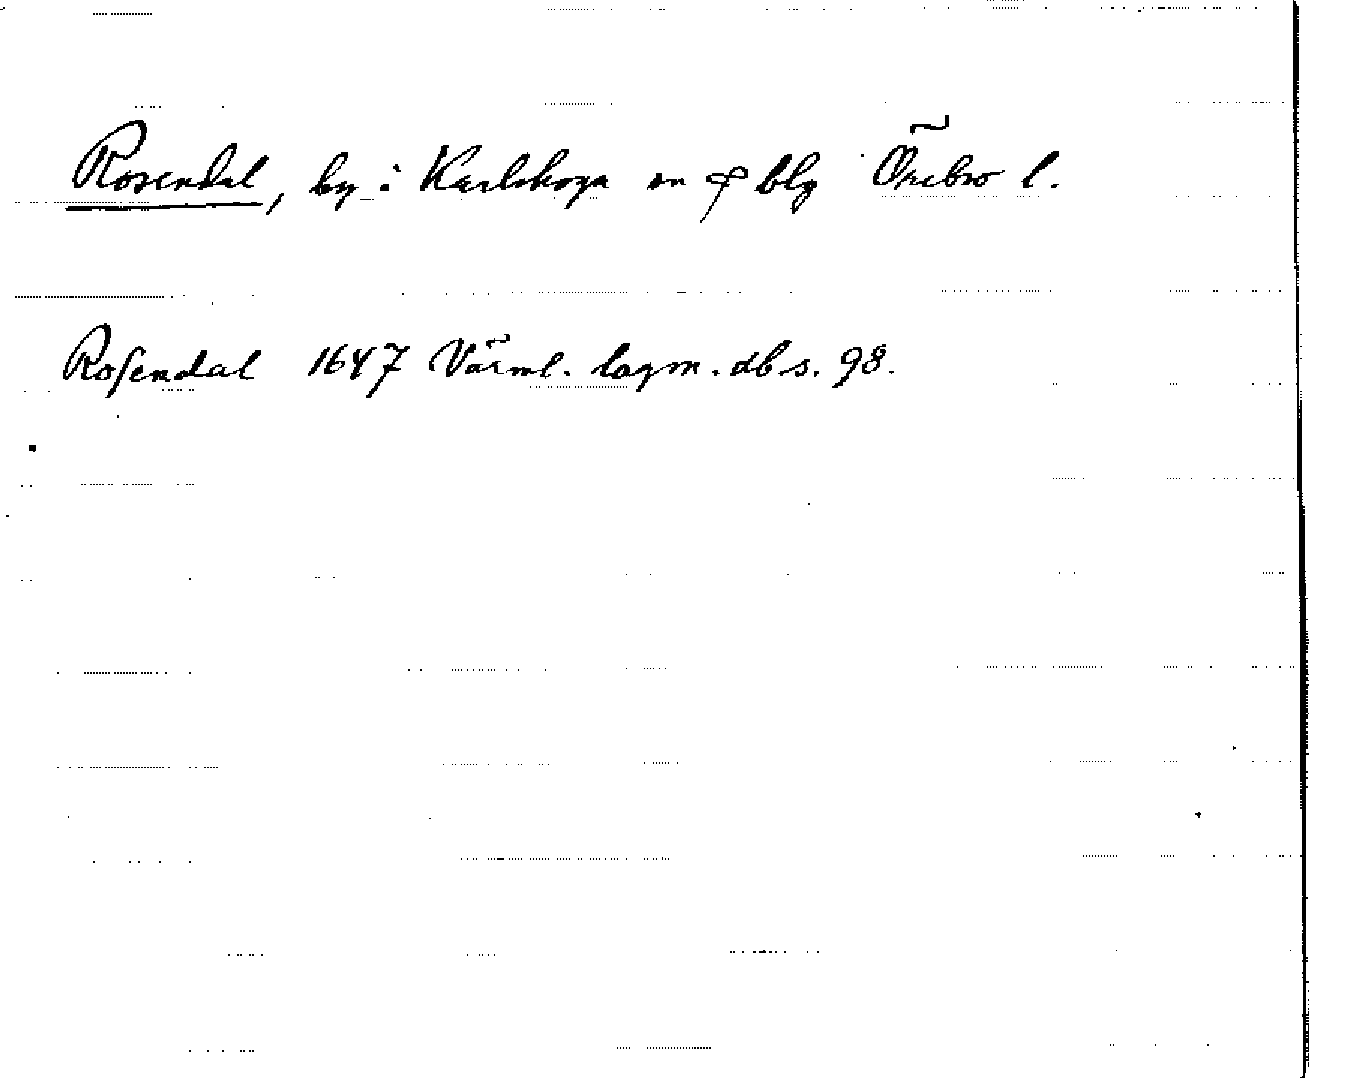 Rosendal, by i Karlskoga sn o blg Örebro l.
Rosendal 1647 Värml. lagm. db s. 98.